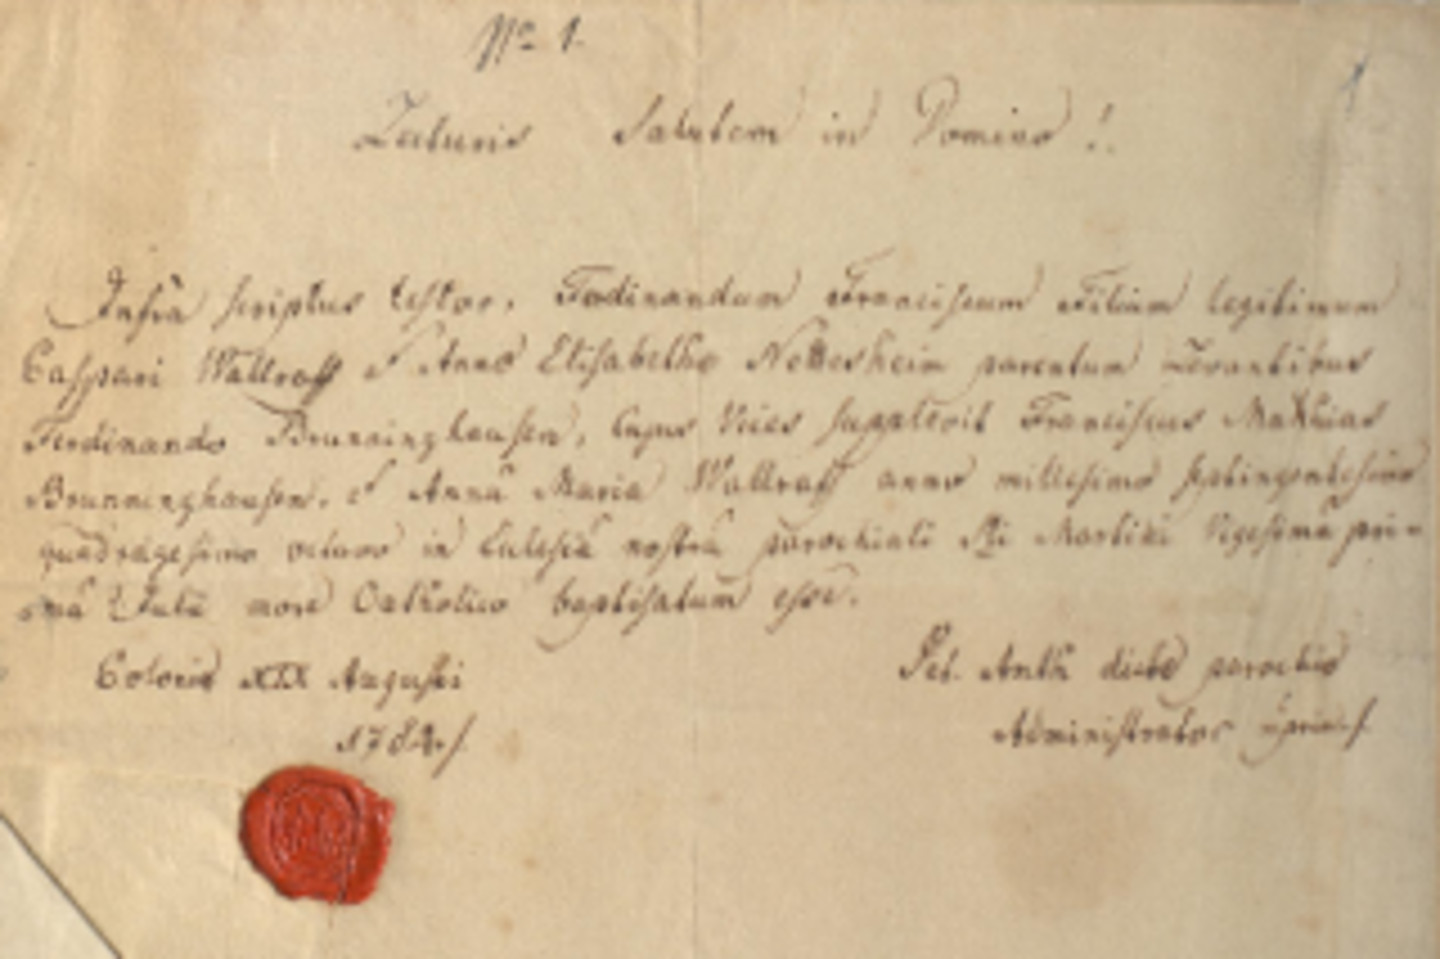 No 1.
Lecturis Salutem in Domino!
Infrà scriptus testor, Ferdinandum Franciscum Filium legitimum
Caspari Wallraff & Annæ Elisabethæ Nettesheim parentum Levantibus
Ferdinando Brunninghausen, cujus vices supplevit Franciscus Mathias
Brunninghausen, & Annâ Maria Wallraff anno millesimo septingentesimo
quadragesimo octavo in Ecclesiâ nostrâ parochiali Sti Martini Vigesimâ pri-
mâ Julii more Catholico baptisatum esse.
Coloniæ XIX Augusti
1784
Pet. Anth dictæ parochiæ
Administrator